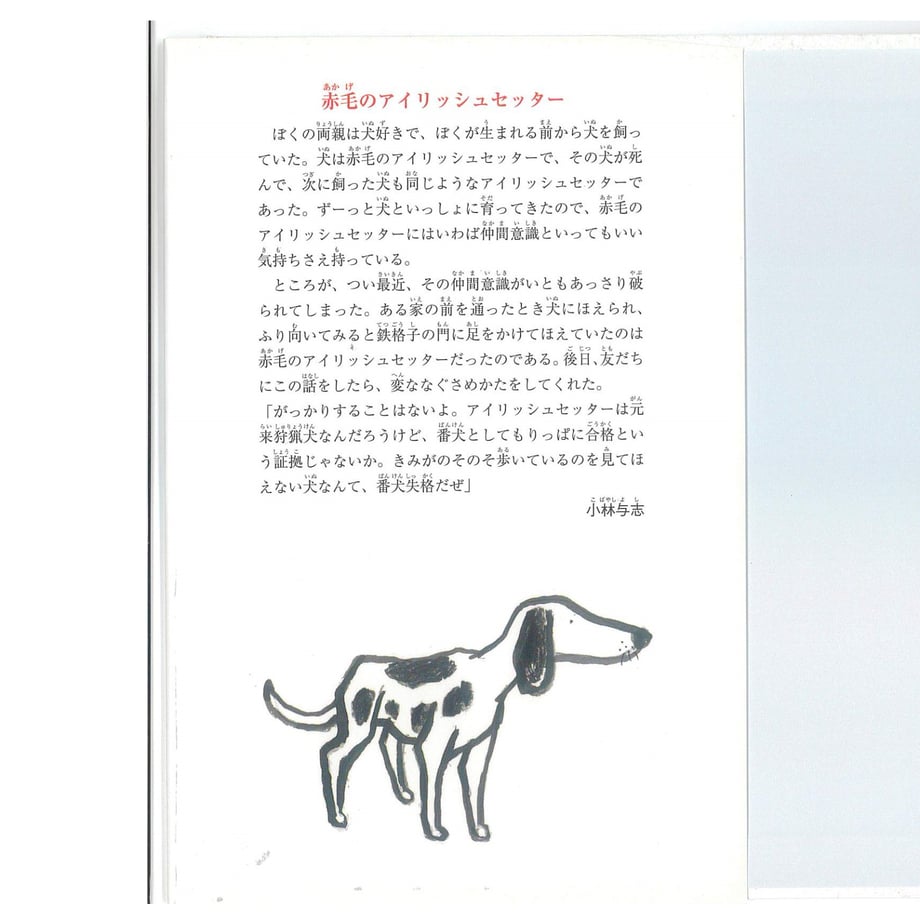 赤毛のアイリッシュセッター
ぼくの両親は犬好きで、ぼくが生まれる前から犬を飼っ
ていた。犬は赤毛のアイリッシュセッターで、その犬が死
んで、次に飼った犬も同じようなアイリッシュセッターで
あった。ずーっと犬といっしょに育ってきたので、赤毛の
アイリッシュセッターにはいわば仲間意識といってもいい
気持ちさえ持っている。
ところが、つい最近、その仲間意識がいともあっさり破
られてしまった。ある家の前を通ったとき犬にほえられ、
ふり向いてみると鉄格子の門に足をかけてほえていたのは
赤毛のアイリッシュセッターだったのである。後日、友だち
にこの話をしたら、変ななぐさめかたをしてくれた。
「がっかりすることはないよ。アイリッシュセッターは元
来狩猟犬なんだろうけど、番犬としてもりっぱに合格とい
う証拠じゃないか。きみがのそのそ歩いているのを見てほ
えない犬なんて、番犬失格だぜ」
小林与志